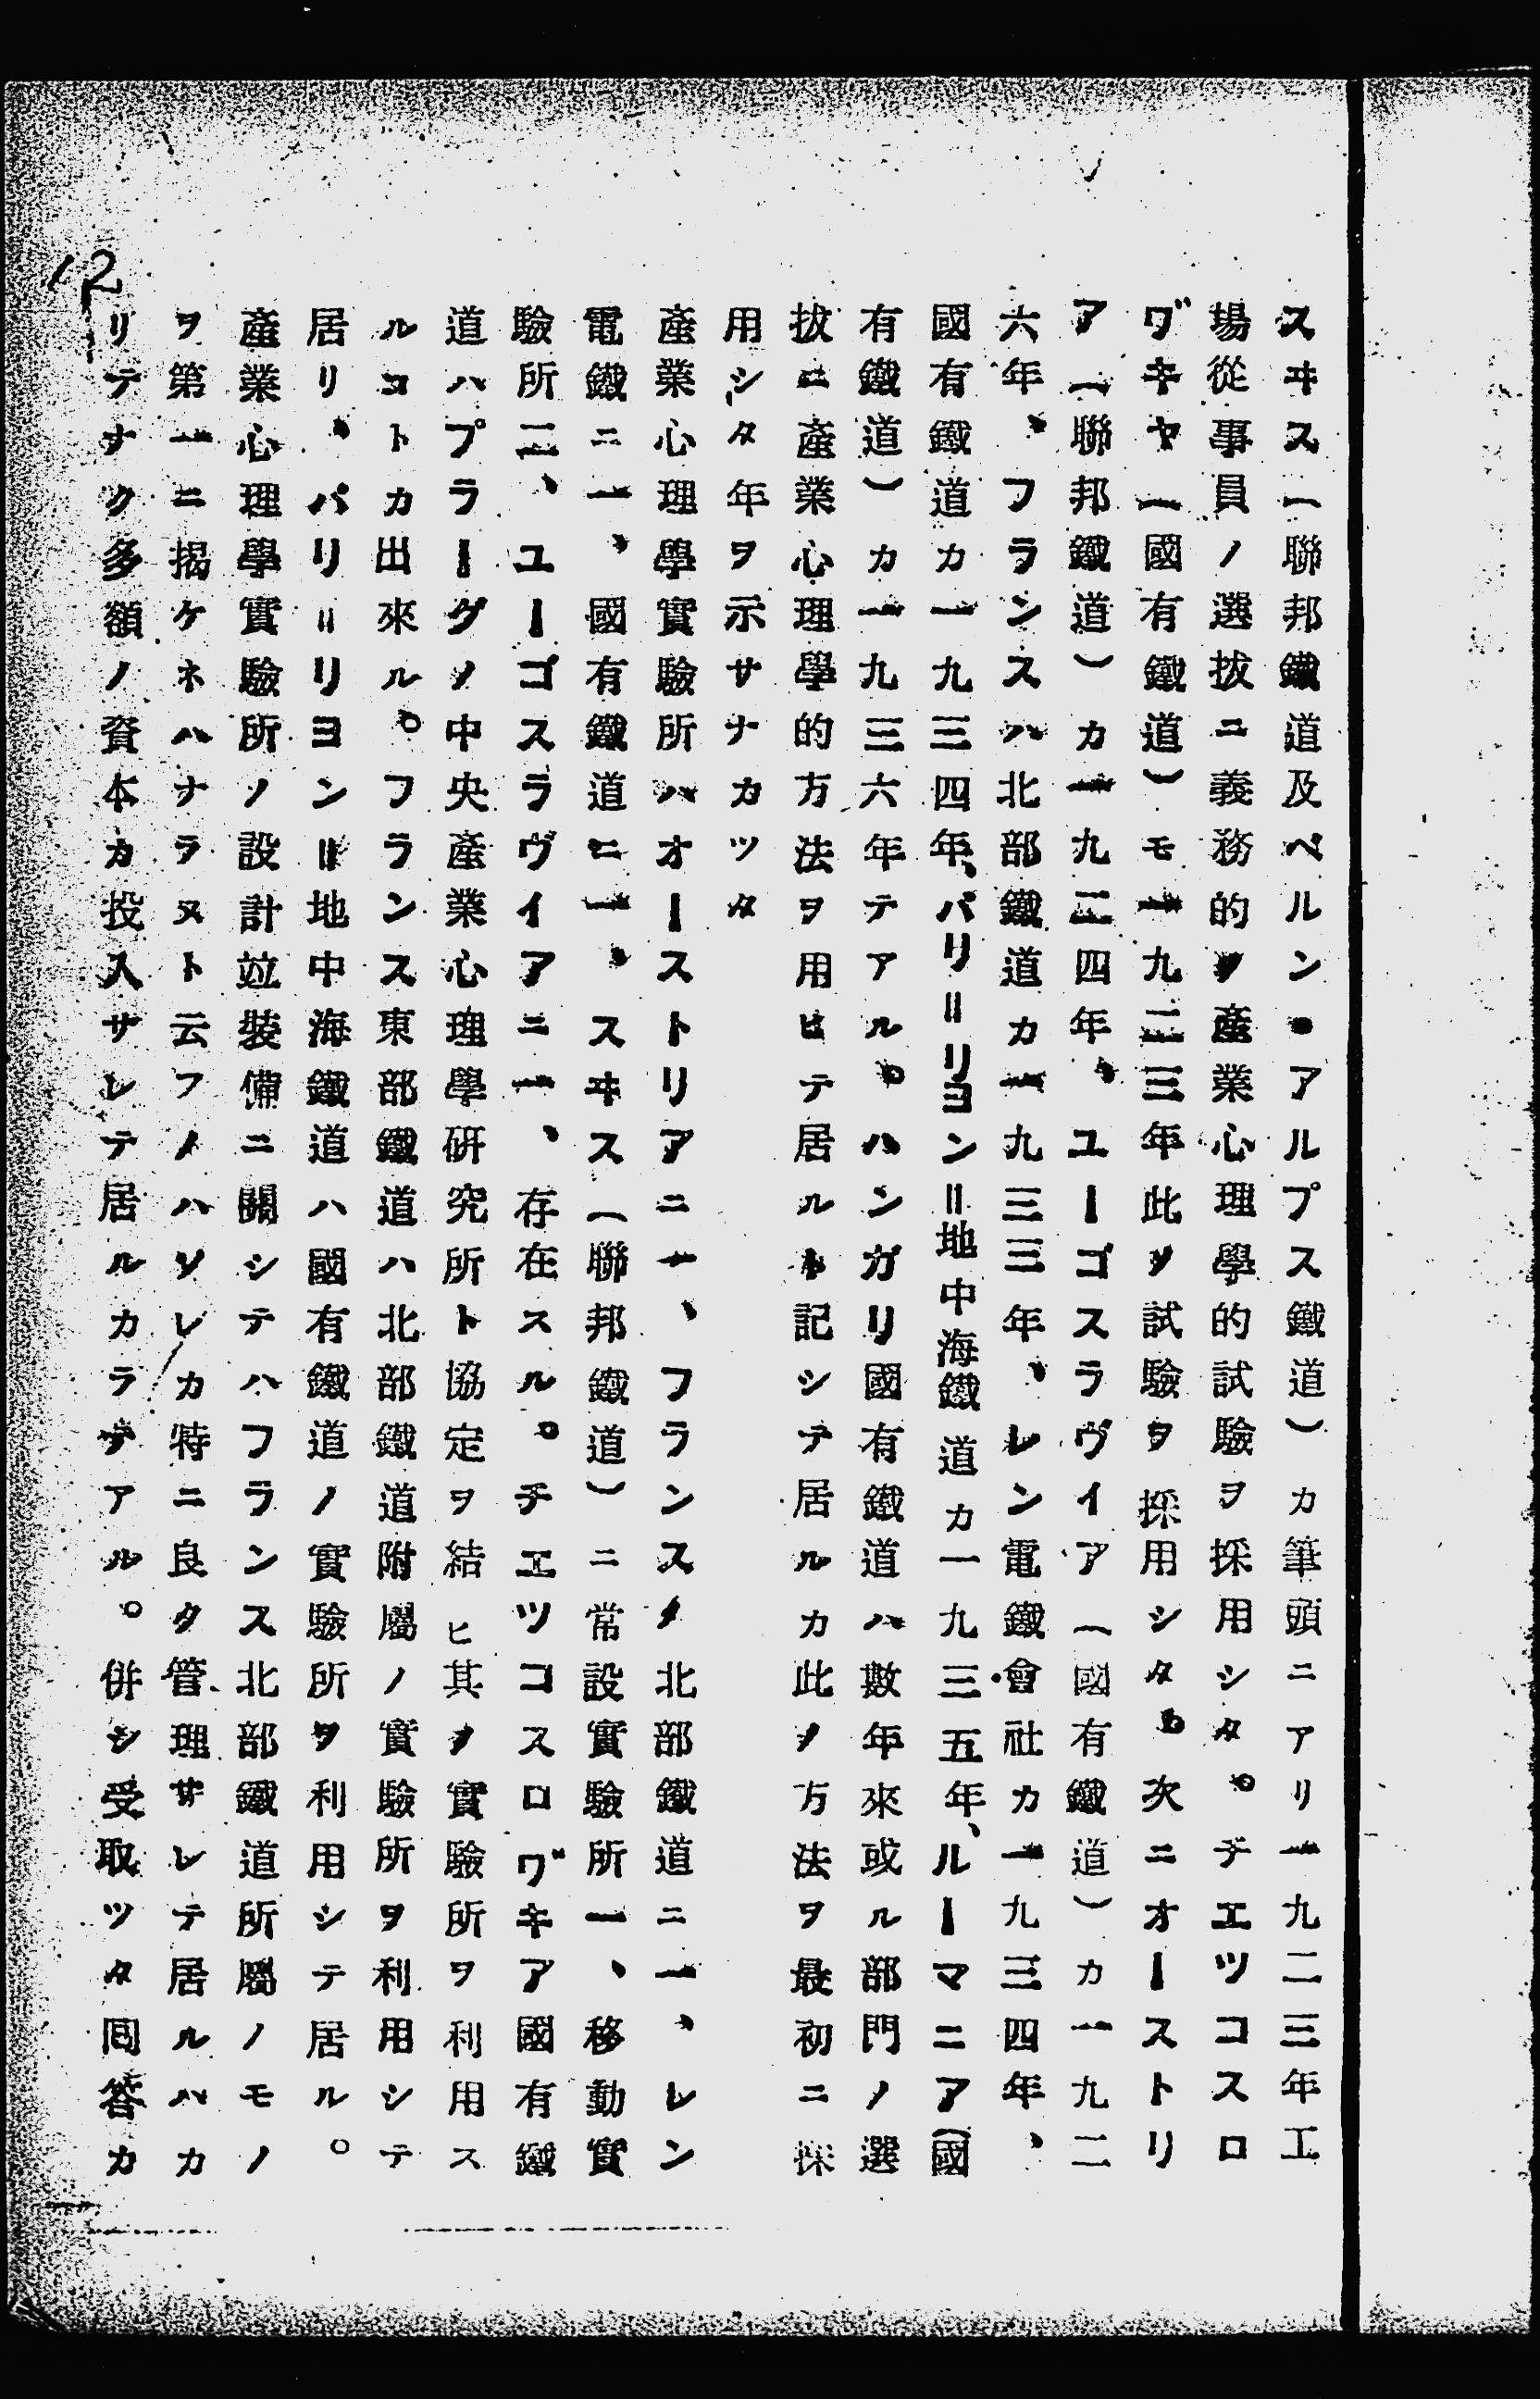 スヰス（聯邦鐵道及ベルン・アルプス鐵道）カ筆頭ニアリ一九二三年工
場從事員ノ選拔ニ義務的ノ產業心理學的試驗ヲ採用シタ。チエツコスロ
ヴキヤ（國有鐵道）モ一九二三年此ノ試驗ヲ採用シタ。次ニオーストリ
ア（聯邦鐵道）カ一九二四年、ユーゴスラヴイア（國有鐵道）カ一九二
六年、フランスハ北部鐵道カ一九三三年、レン電鐵會社カ一九三四年、
國有鐵道カ一九三四年、パリ＝リヨン＝地中海鐵道カ一九三五年、ルーマニア（國
有鐵道）カ一九三六年テアル。ハンガリ國有鐵道ハ數年來或ル部門ノ選
拔ニ產業心理學的方法ヲ用ヒテ居ルト記シテ居ルカ此ノ方法ヲ最初ニ採
用シタ年ヲ示サナカツタ
產業心理學實驗所ハオーストリアニ一、フランスノ北部鐵道ニ一、レン
電鐵ニ一、國有鐵道ニ一、スヰス（聯邦鐵道）ニ常設實驗所一、移動實
驗所二、ユーゴスラヴイアニ一、存在スル。チエツコスロヴキア國有鐵
道ハプラーグノ中央產業心理學研究所ト協定ヲ結ヒ其ノ實驗所ヲ利用ス
ルコトカ出來ル。フランス東部鐵道ハ北部鐵道附屬ノ實驗所ヲ利用シテ
居リ、パリ＝リヨン＝地中海鐵道ハ國有鐵道ノ實驗所ヲ利用シテ居ル。
產業心理學實驗所ノ設計竝裝備ニ關シテハフランス北部鐵道所屬ノモノ
ヲ第一ニ揭ケネハナラヌト云フノハソレカ特ニ良タ管理サレテ居ルハカ
リテナク多額ノ資本カ投入サレテ居ルカラデアル。併シ受取ツタ回答カ
12